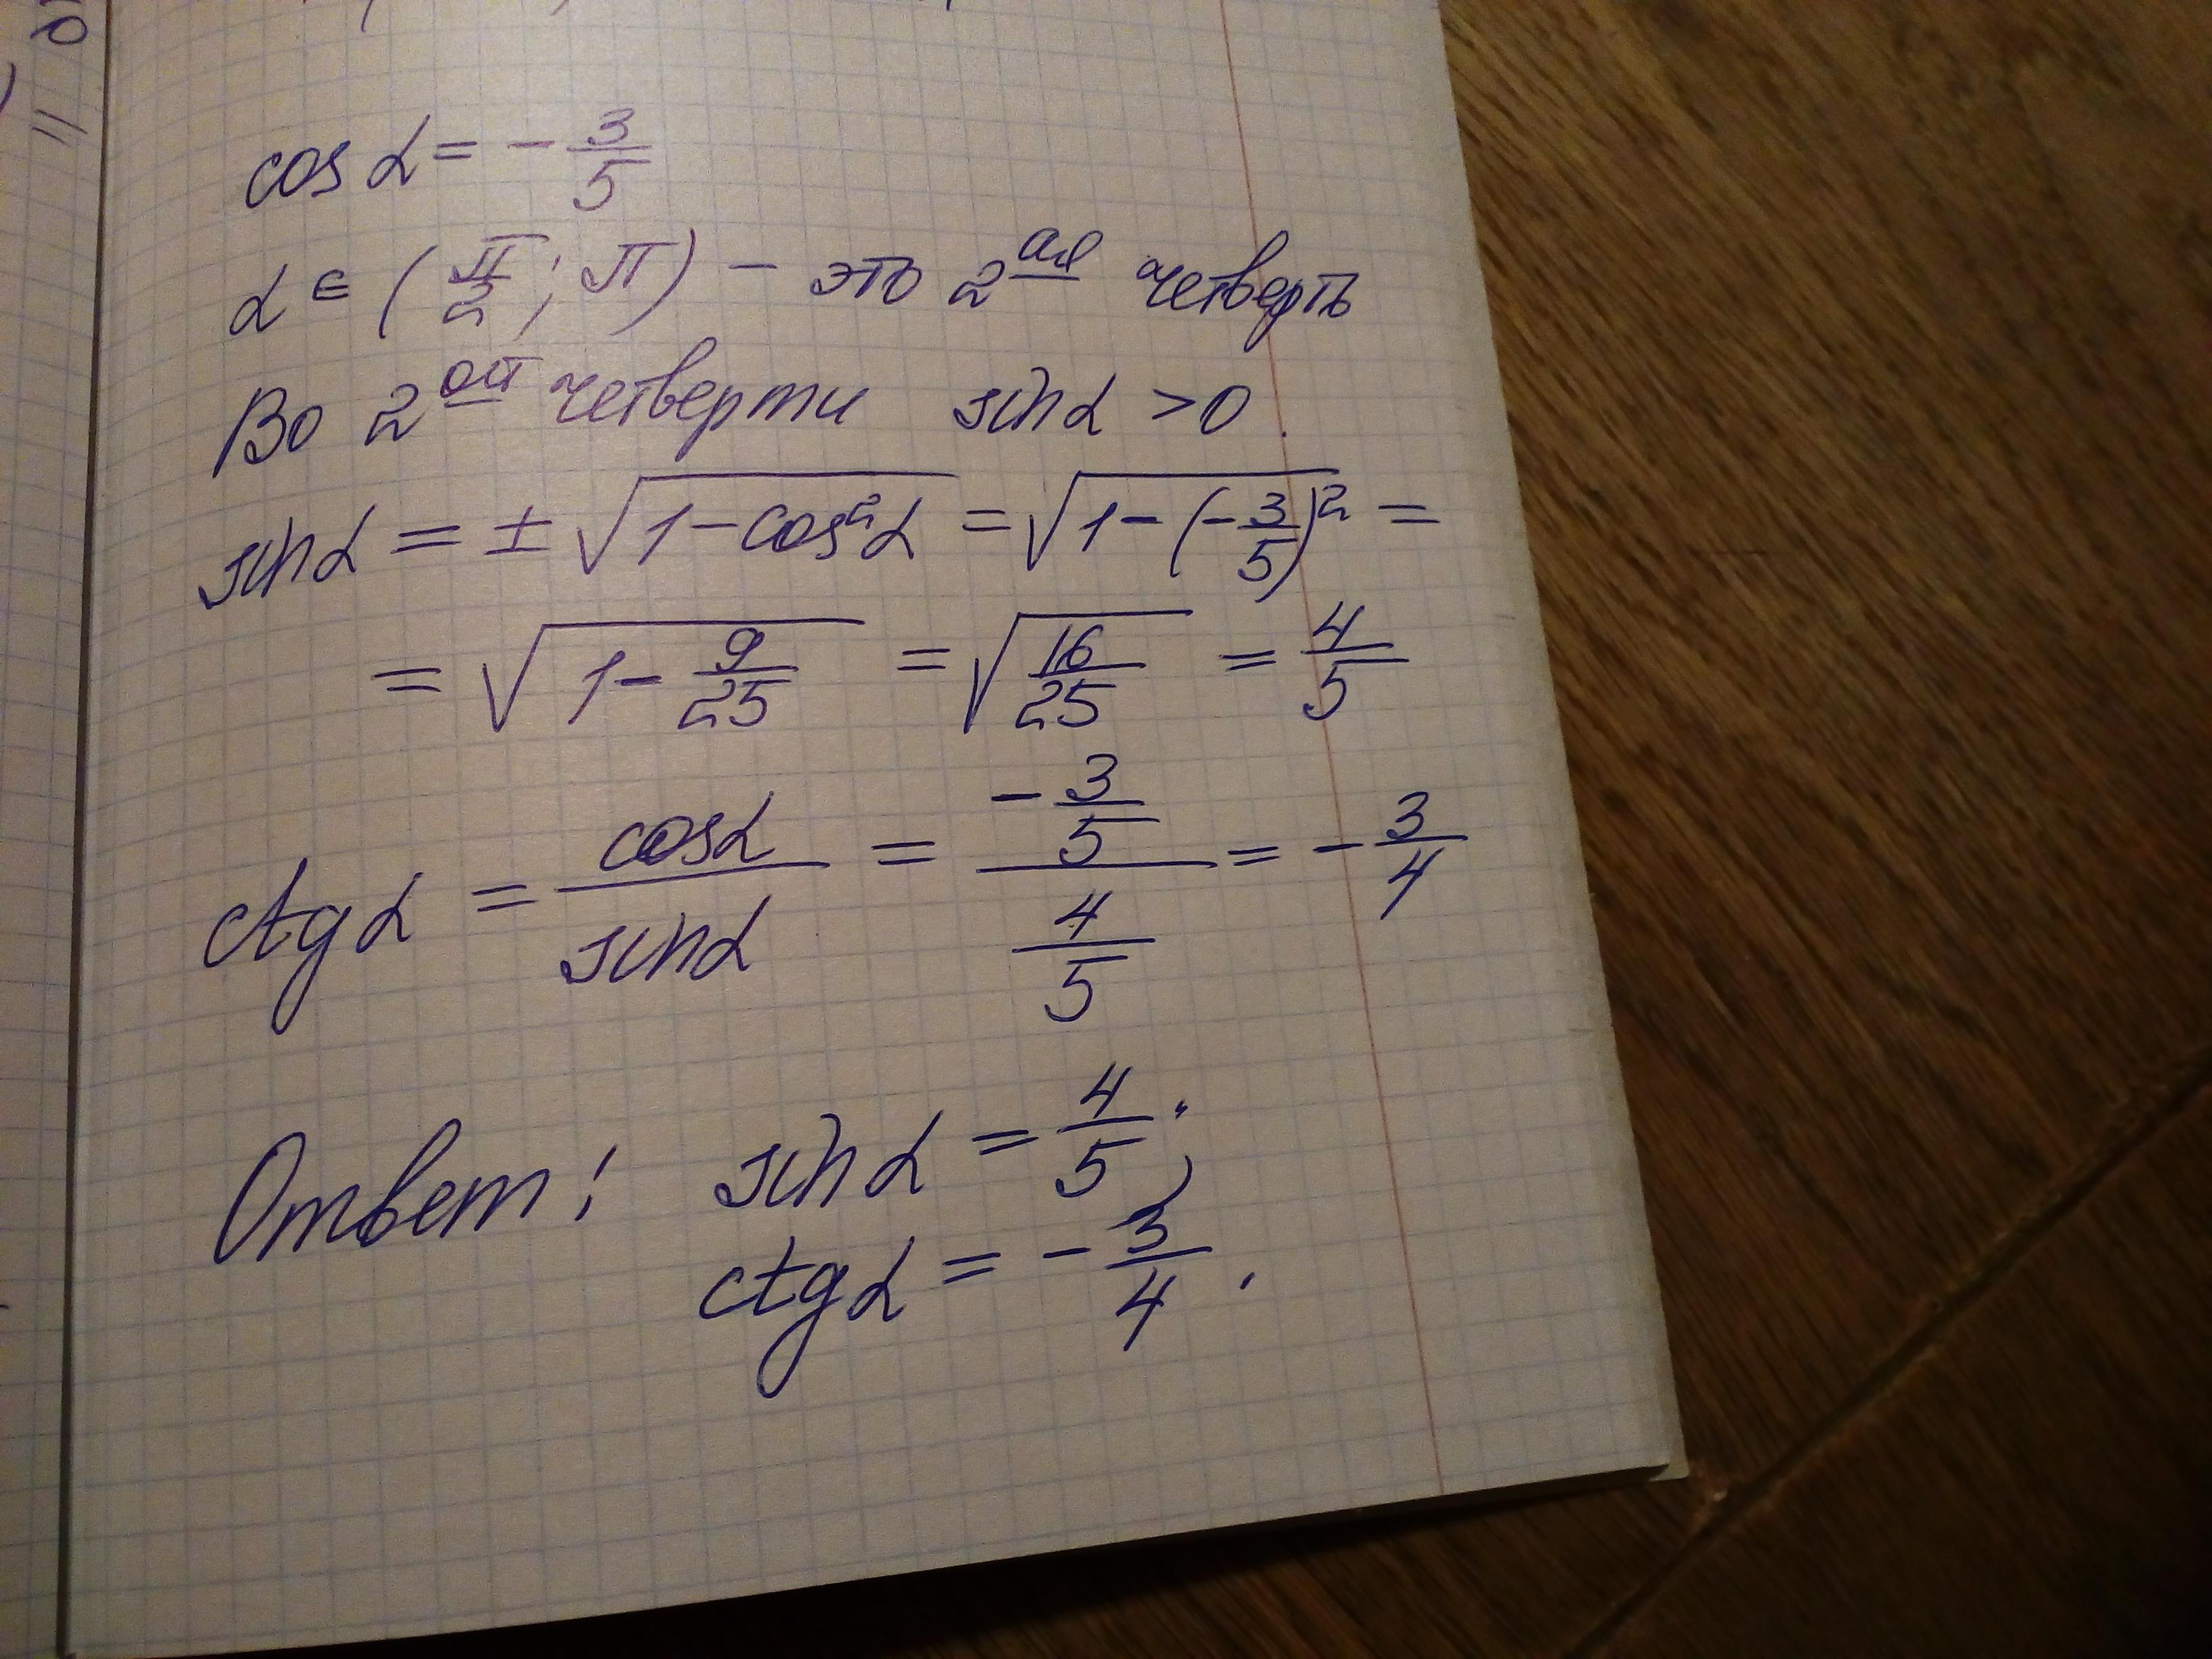 cos α = - 3/5
α ∈ (π/2; π) - это 2ая четверть
Во 2ой четверти sin α > 0.
sin α = ± √(1 - cos²α) = √(1 - (-3/5)²) =
= √(1 - 9/25) = √(16/25) = 4/5
ctg α = cos α / sin α = (- 3/5) / (4/5) = - 3/4
Ответ: sin α = 4/5;
ctg α = - 3/4.